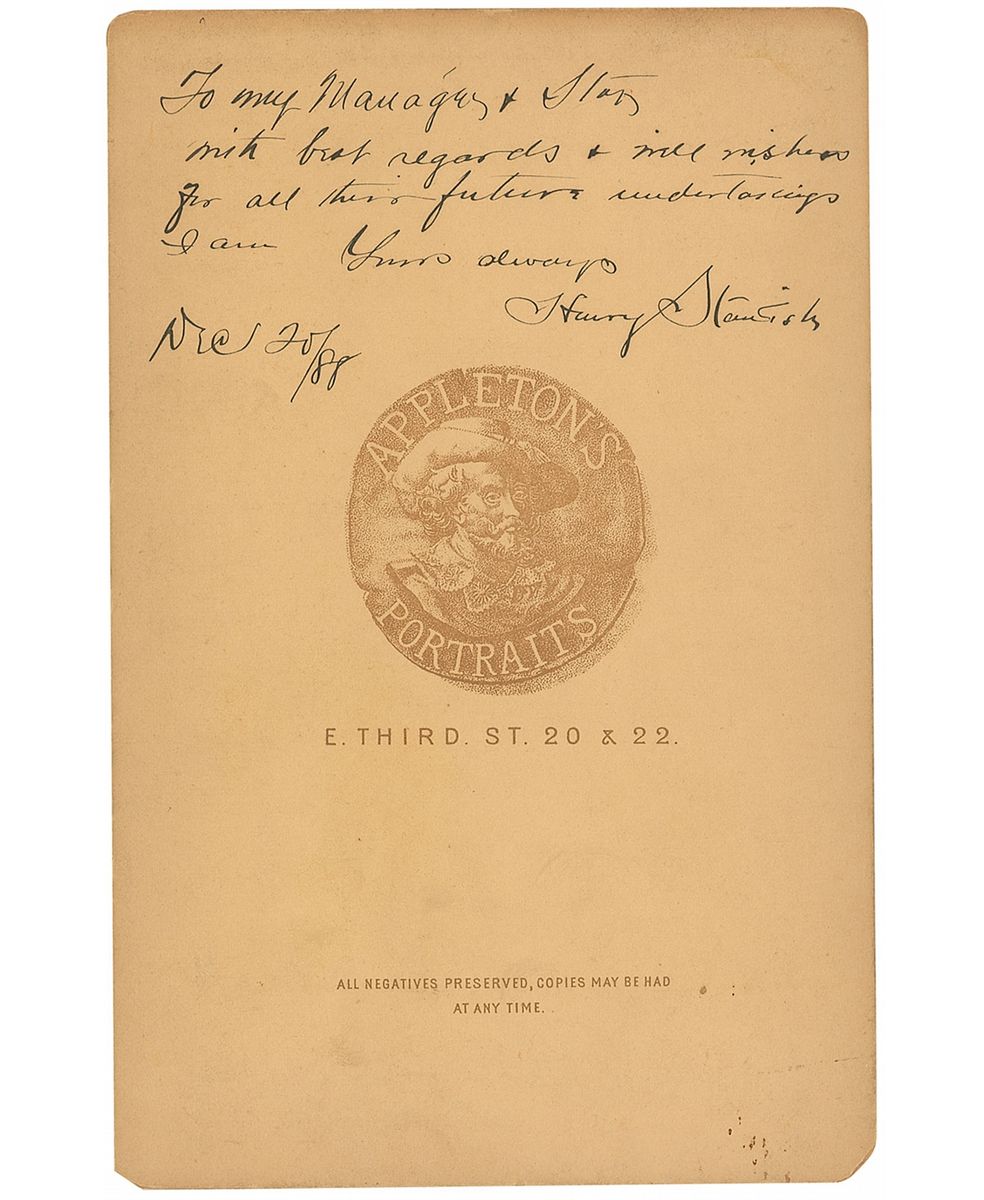 To my Manager & Star
with best regards & well wishes
for all their future undertakings
I am Yours always
Henry Standish
Dec 20/88
APPLETON'S
PORTRAITS
E. THIRD. ST. 20 & 22.
ALL NEGATIVES PRESERVED, COPIES MAY BE HAD
AT ANY TIME.